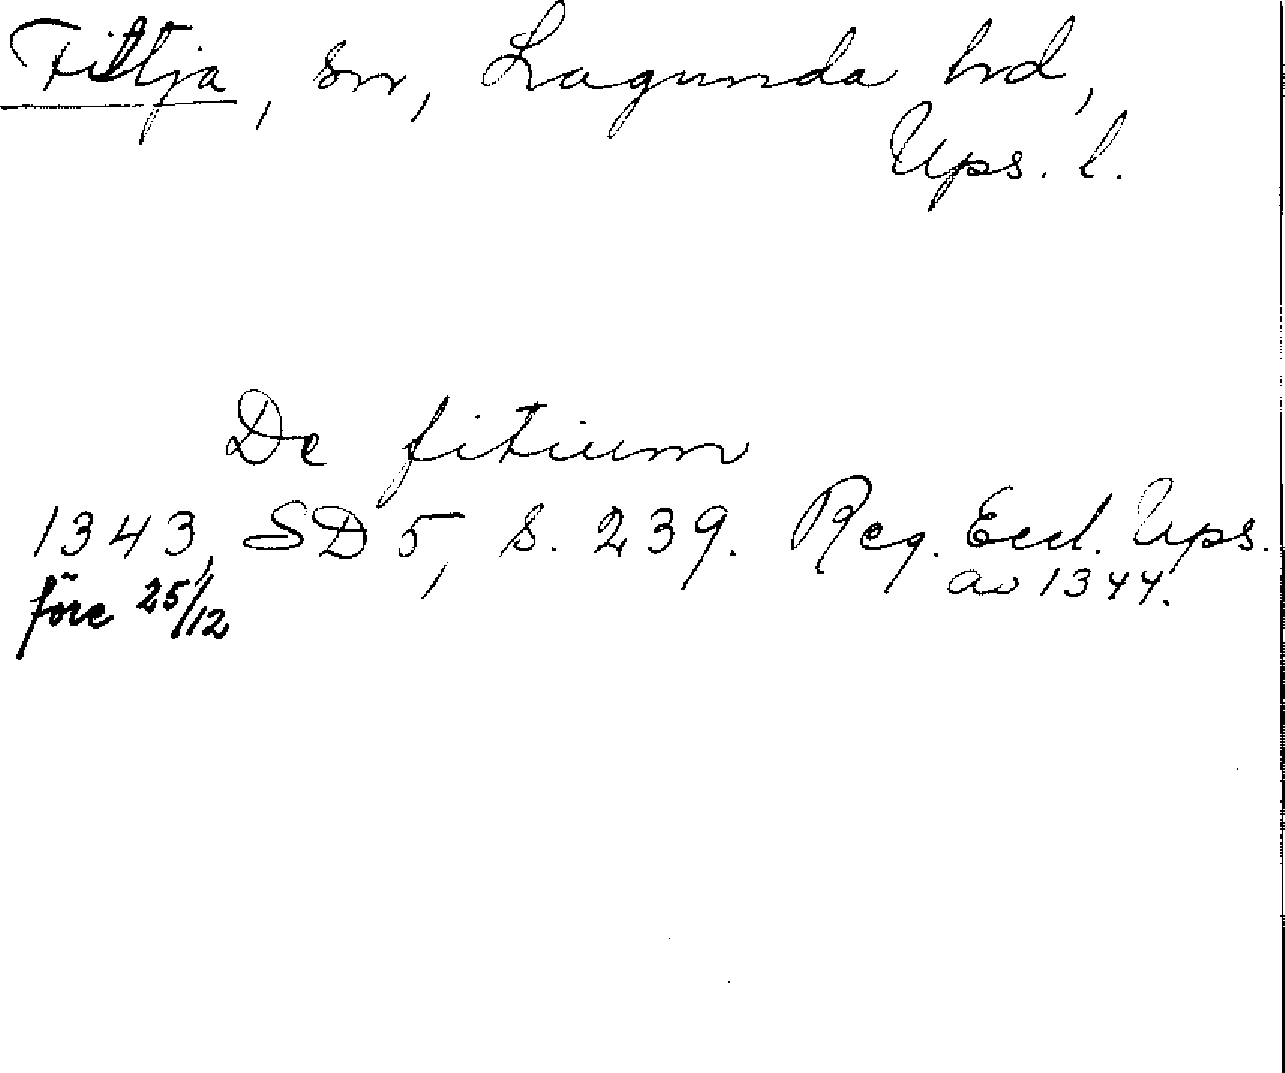 Fittja, sn, Lagunda hd,
Ups. l.
De fitium
1343, SD 5, s. 239. Reg. Eccl. Ups.
före 25/12 av 1344.